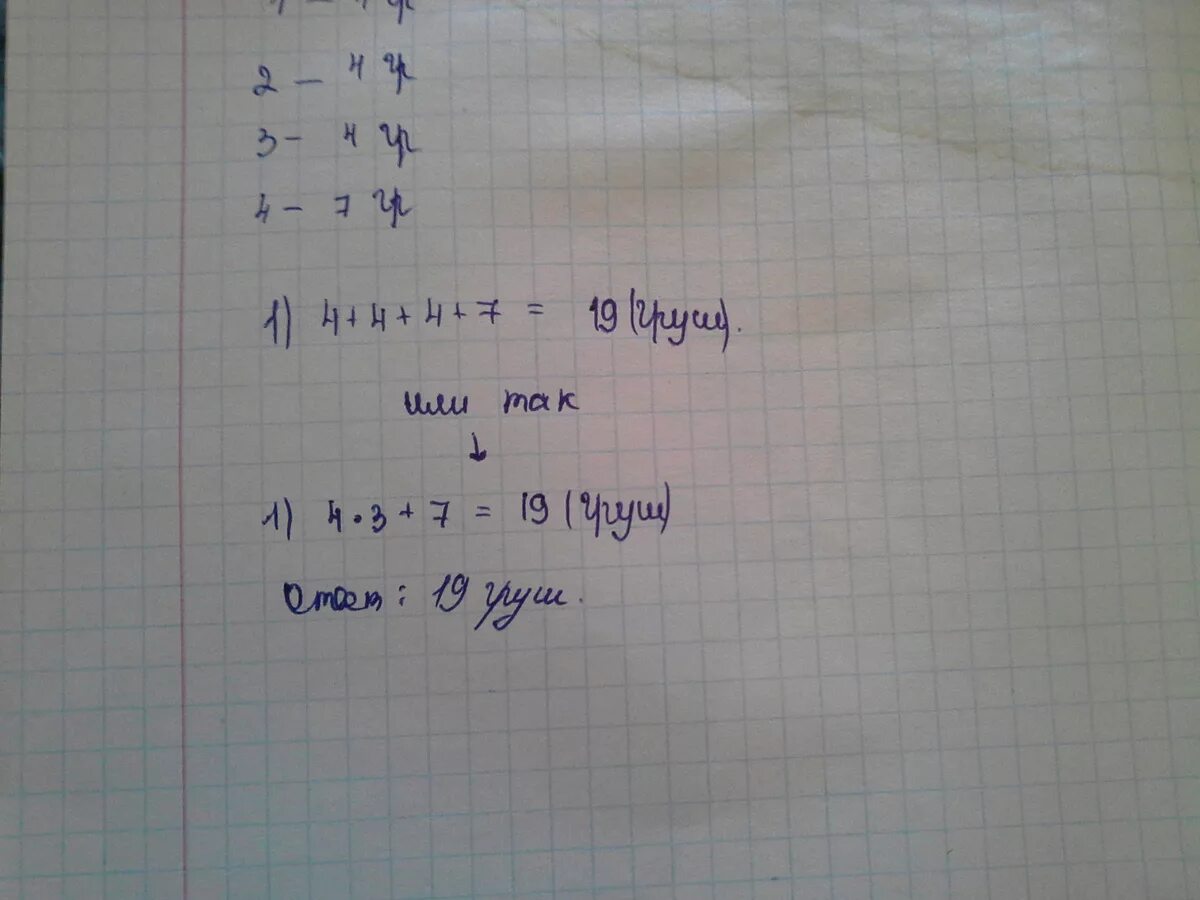 2 - 4 гр
3 - 4 гр
4 - 7 гр
1) 4+4+4+7 = 19 (груш).
или так
↓
1) 4·3+7 = 19 (груш)
Ответ: 19 груш.